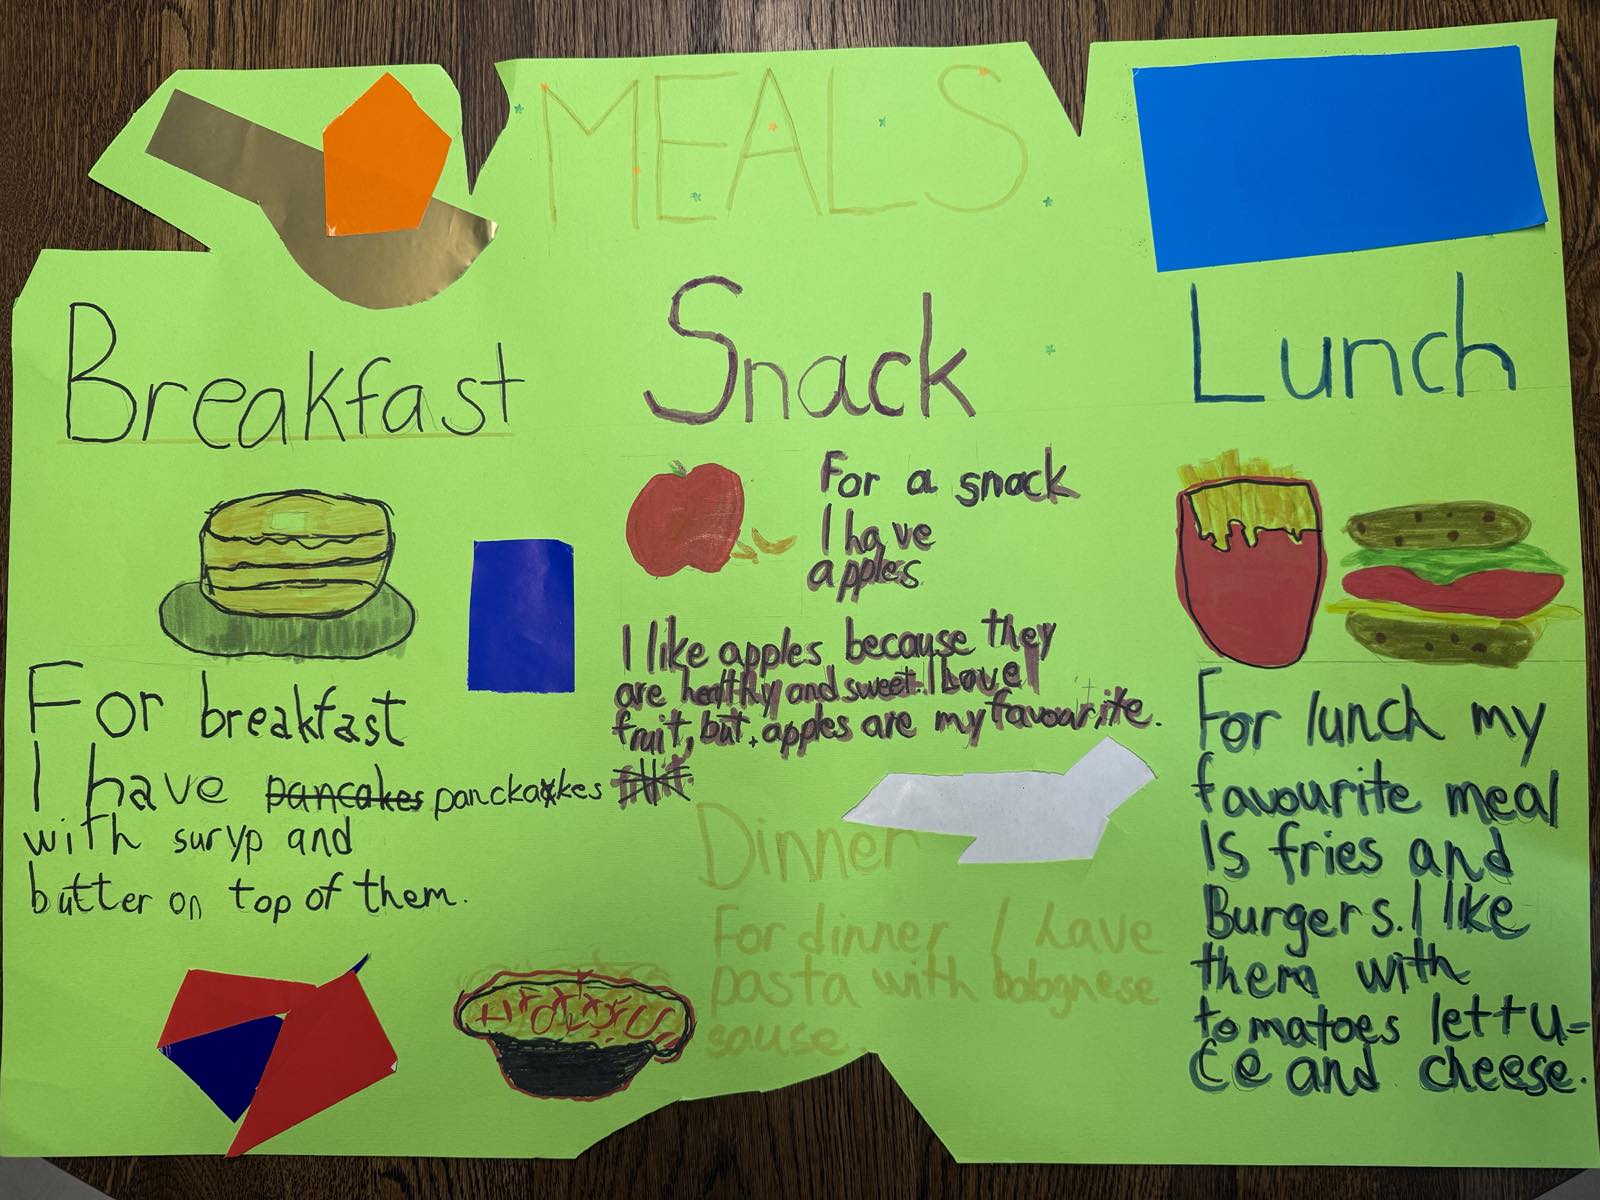 MEALS
Breakfast
For breakfast
I have pancakes panckaxkes
with suryp and
butter on top of them.
Snack
For a snack
I have
apples
I like apples because they
are healthy and sweet. I Love
fruit, but, apples are my favourite.
Dinner
For dinner I have
pasta with bolognese
sause.
Lunch
For lunch my
favourite meal
Is fries and
Burgers. I like
them with
tomatoes lettu=
ce and cheese.